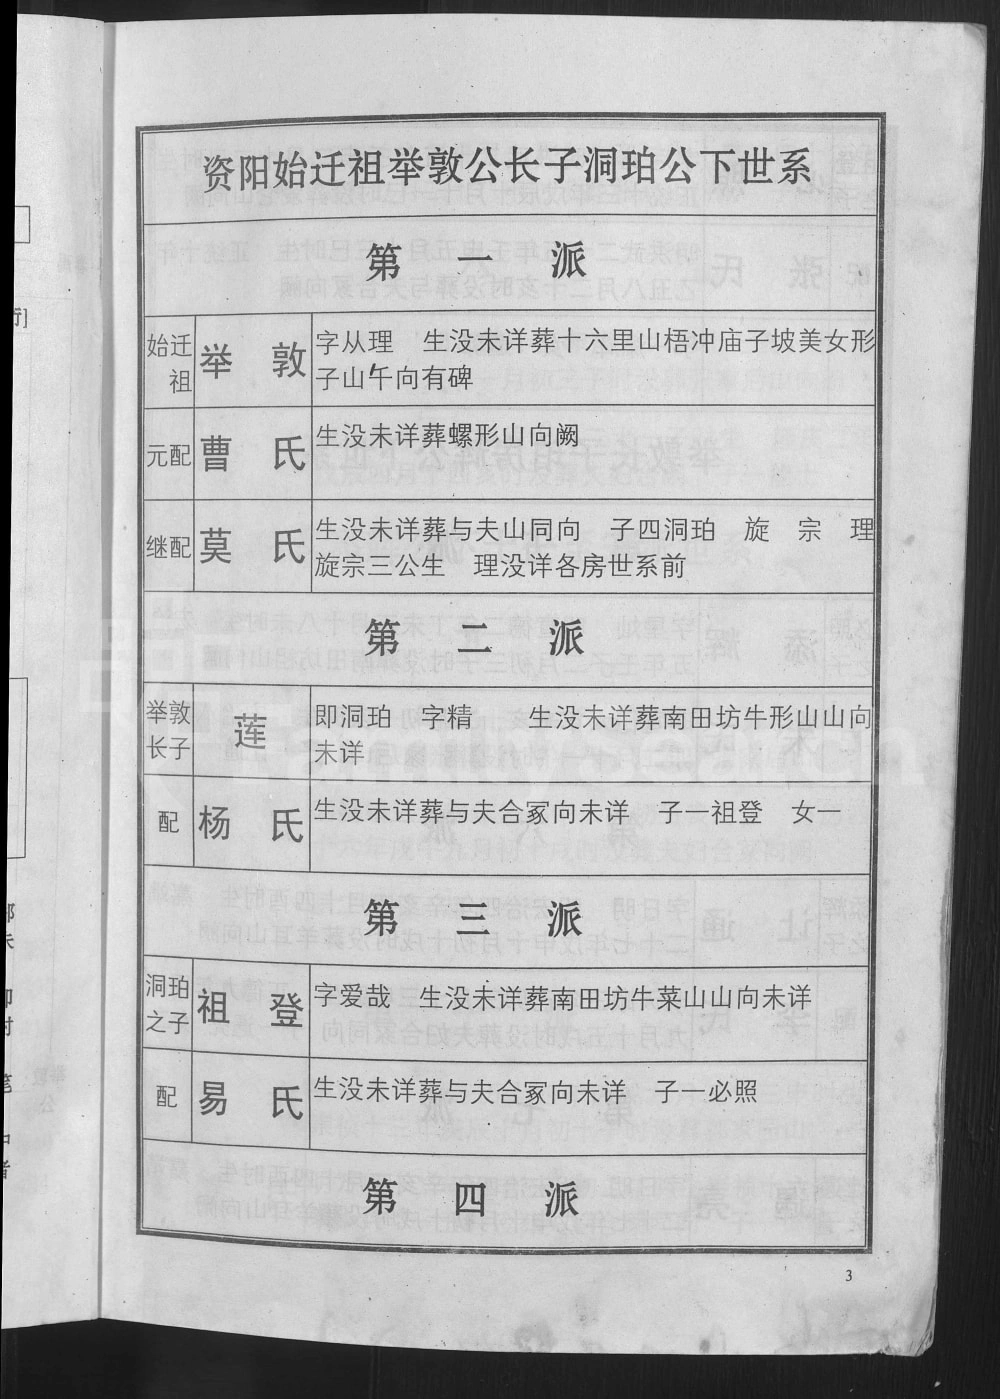 资阳始迁祖举敦公长子洞珀公下世系
第 一 派
始迁祖 举 敦 字从理 生没未详葬十六里山梧冲庙子坡美女形
子山午向有碑
元配 曹 氏 生没未详葬螺形山向阙
继配 莫 氏 生没未详葬与夫山同向 子四洞珀 旋 宗 理
旋宗三公生 理没详各房世系前
第 二 派
举敦长子 莲 即洞珀 字精 生没未详葬南田坊牛形山山向
未详
配 杨 氏 生没未详葬与夫合冢向未详 子一祖登 女一
第 三 派
洞珀之子 祖 登 字爱哉 生没未详葬南田坊牛菜山山向未详
配 易 氏 生没未详葬与夫合冢向未详 子一必照
第 四 派
3